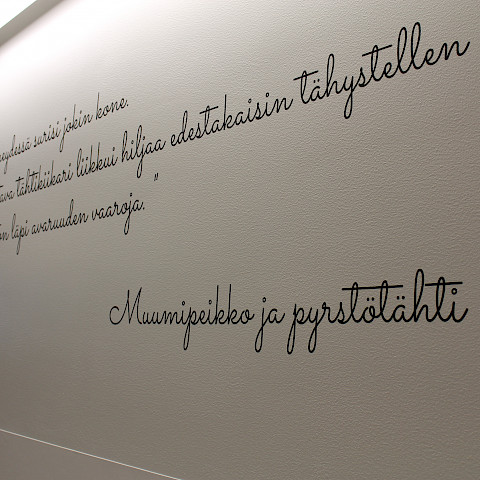 surisi jokin kone.
tähtikiikari liikkui hiljaa edestakaisin tähystellen
läpi avaruuden vaaroja. "
Muumipeikko ja pyrstötähti